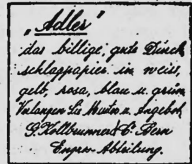 „Adler"
das billige, gute Einwick
schlagpapier in weiß,
gelb, rosa, blau u. grün
Verlangen Sie Muster u. Angebot,
G. Kollbrunner & Co. Bern
Engros-Abteilung.